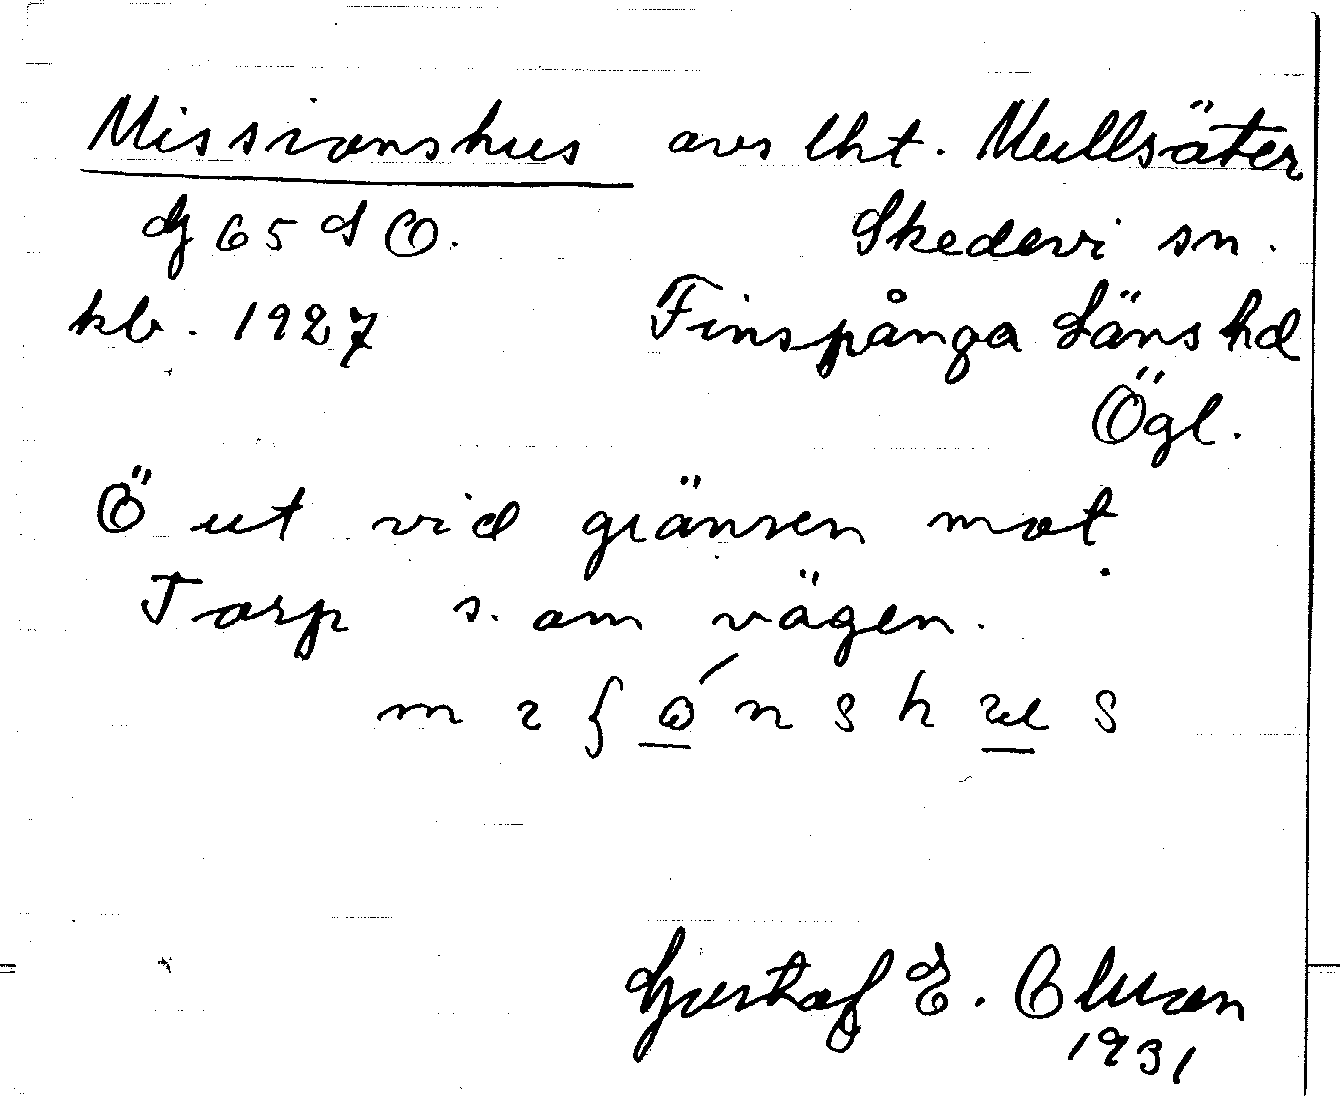 Missionshus avs lht. Mullsäter
G 65 d O. Skedevi sn.
kb. 1927 Finspånga Läns hd
Ögl.
Ö ut vid gränsen mot
Torp s. om vägen.
m ɩ ʃ ó n s h u s
Gustaf E. Olsson
1931